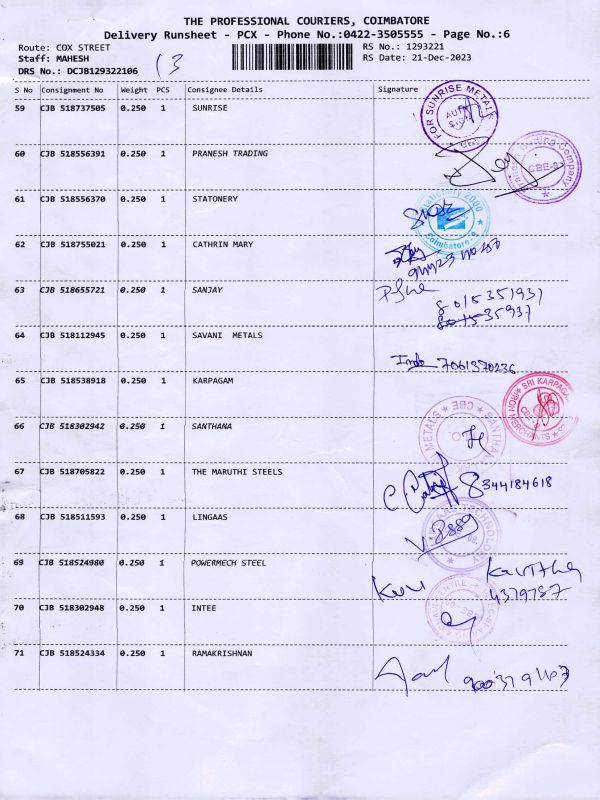 THE PROFESSIONAL COURIERS, COIMBATORE
Delivery Runsheet - PCX - Phone No.:0422-3505555 - Page No.:6
Route: COX STREET
RS No.: 1293221
Staff: MAHESH
RS Date: 21-Dec-2023
DRS No.: DCJB129322106
13
S No Consignment No Weight PCS Consignee Details Signature
59 CJB 518737505 0.250 1 SUNRISE
FOR SUNRISE METALS
60 CJB 518556391 0.250 1 PRANESH TRADING
Trading Company
CBE-9
61 CJB 518556370 0.250 1 STATONERY
Stationery 2000
Coimbatore-9
62 CJB 518755021 0.250 1 CATHRIN MARY
63 CJB 518655721 0.250 1 SANJAY
8015351937
64 CJB 518112945 0.250 1 SAVANI METALS
7061370236
65 CJB 518538918 0.250 1 KARPAGAM
SRI KARPAGA
IRON MERCHANTS
66 CJB 518302942 0.250 1 SANTHANA
SANTHANA METALS CBE
67 CJB 518705822 0.250 1 THE MARUTHI STEELS
8344184618
68 CJB 518511593 0.250 1 LINGAAS
69 CJB 518524980 0.250 1 POWERMECH STEEL
70 CJB 518302948 0.250 1 INTEE
71 CJB 518524334 0.250 1 RAMAKRISHNAN